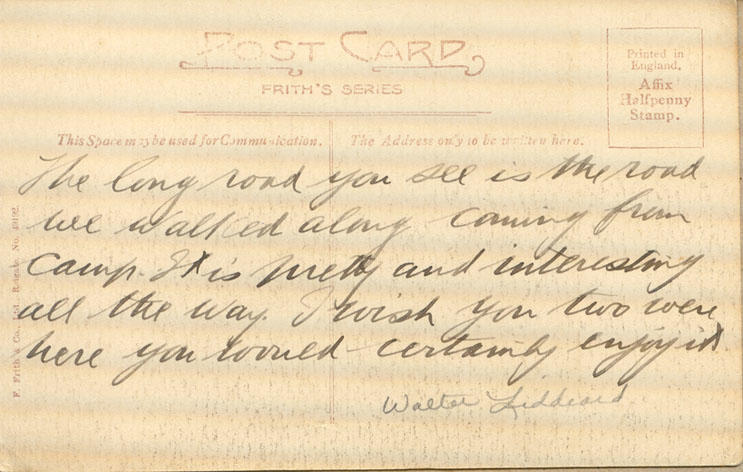 POST CARD
FRITH'S SERIES
Printed in
England.
Affix
Halfpenny
Stamp.
This Space may be used for Communication.
The Address only to be written here.
The long road you see is the road
we walked along coming from
camp. It is pretty and interesting
all the way. I wish you two were
here you would certainly enjoy it.
Walter Liddeard
F. Frith & Co., Ltd., Reigate. No.